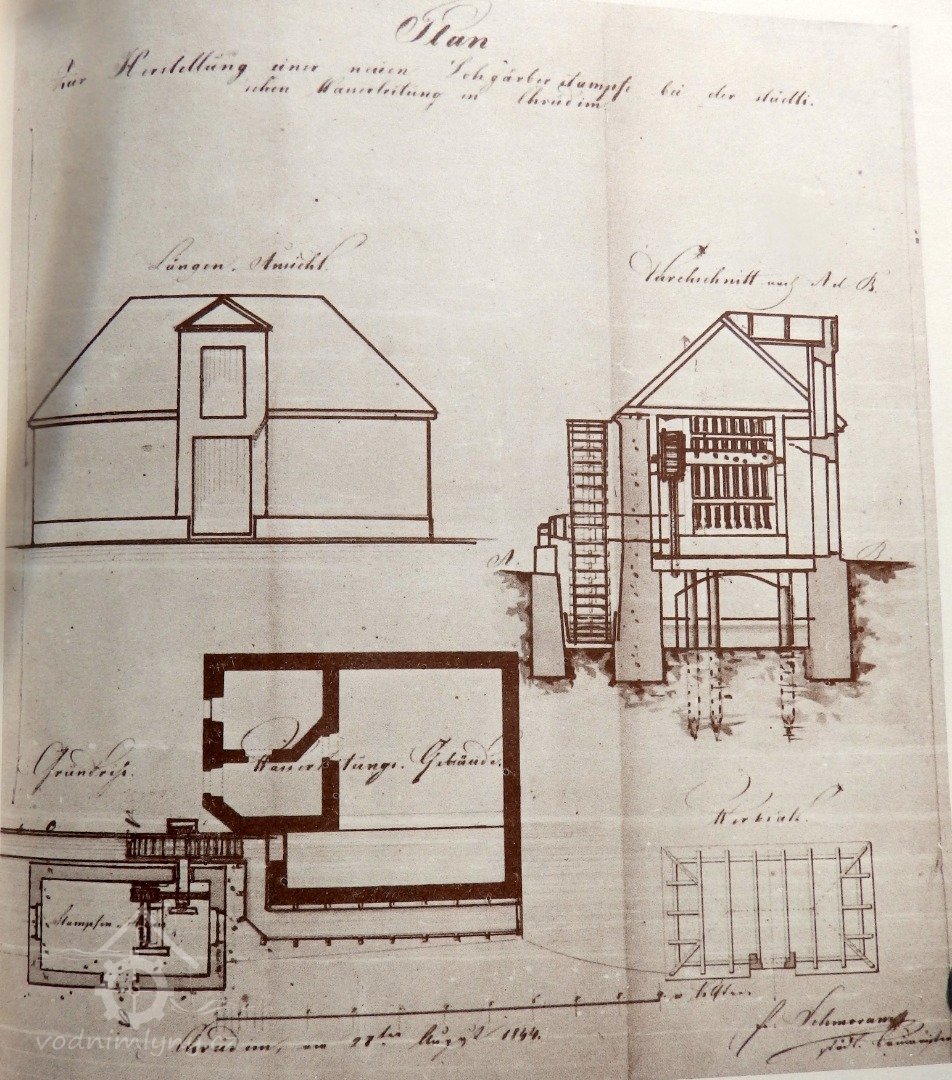 Plan
zur Herstellung einer neuen Lohgärber stampfe bei der städti-
schen Wasserleitung in Chrudim.
Längen-Ansicht.
Durchschnitt nach A et B.
A.
B.
Grundriß.
Wasserleitungs-Gebäude.
Werksatz.
Stampfen
Klafter
Chrudim, am August 1844.
städt. Baumeister
vodnimlyny